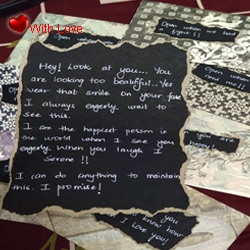 With Love
Open when we had
a fight !!
Hey! Look at you... You
are looking too beautiful...Yes
wear that smile on your face
I always eagerly wait to
see this.
I am the happiest person in
the world when I see you
eagerly. When you laugh I
Serene !!
I can do anything to maintain
this. I promise!
Open when
you are
happy
you
know how
I love you!